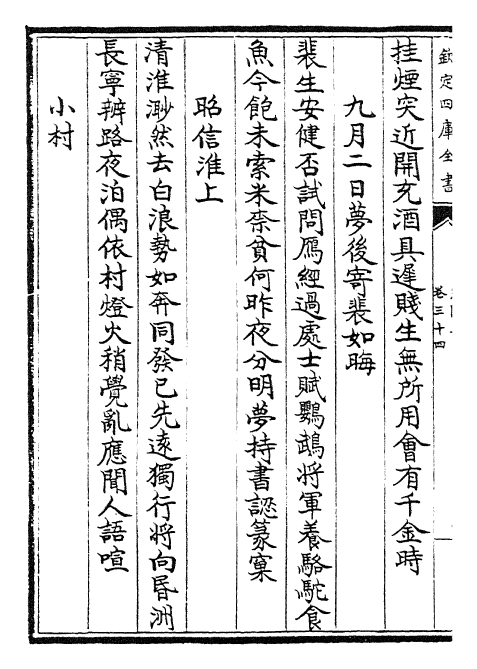 欽定四庫全書
卷三十四
挂煙突近開充酒具遲賤生無所用會有千金時
九月二日夢後寄裴如晦
裴生安健否試問鴈經過處士賦鸚鵡將軍養駱駝食
魚今飽未索米柰貧何昨夜分明夢持書認篆窠
昭信淮上
清淮渺然去白浪勢如奔同發已先逺獨行將向昏洲
長寧辨路夜泊偶依村燈火稍覺亂應聞人語喧
小村